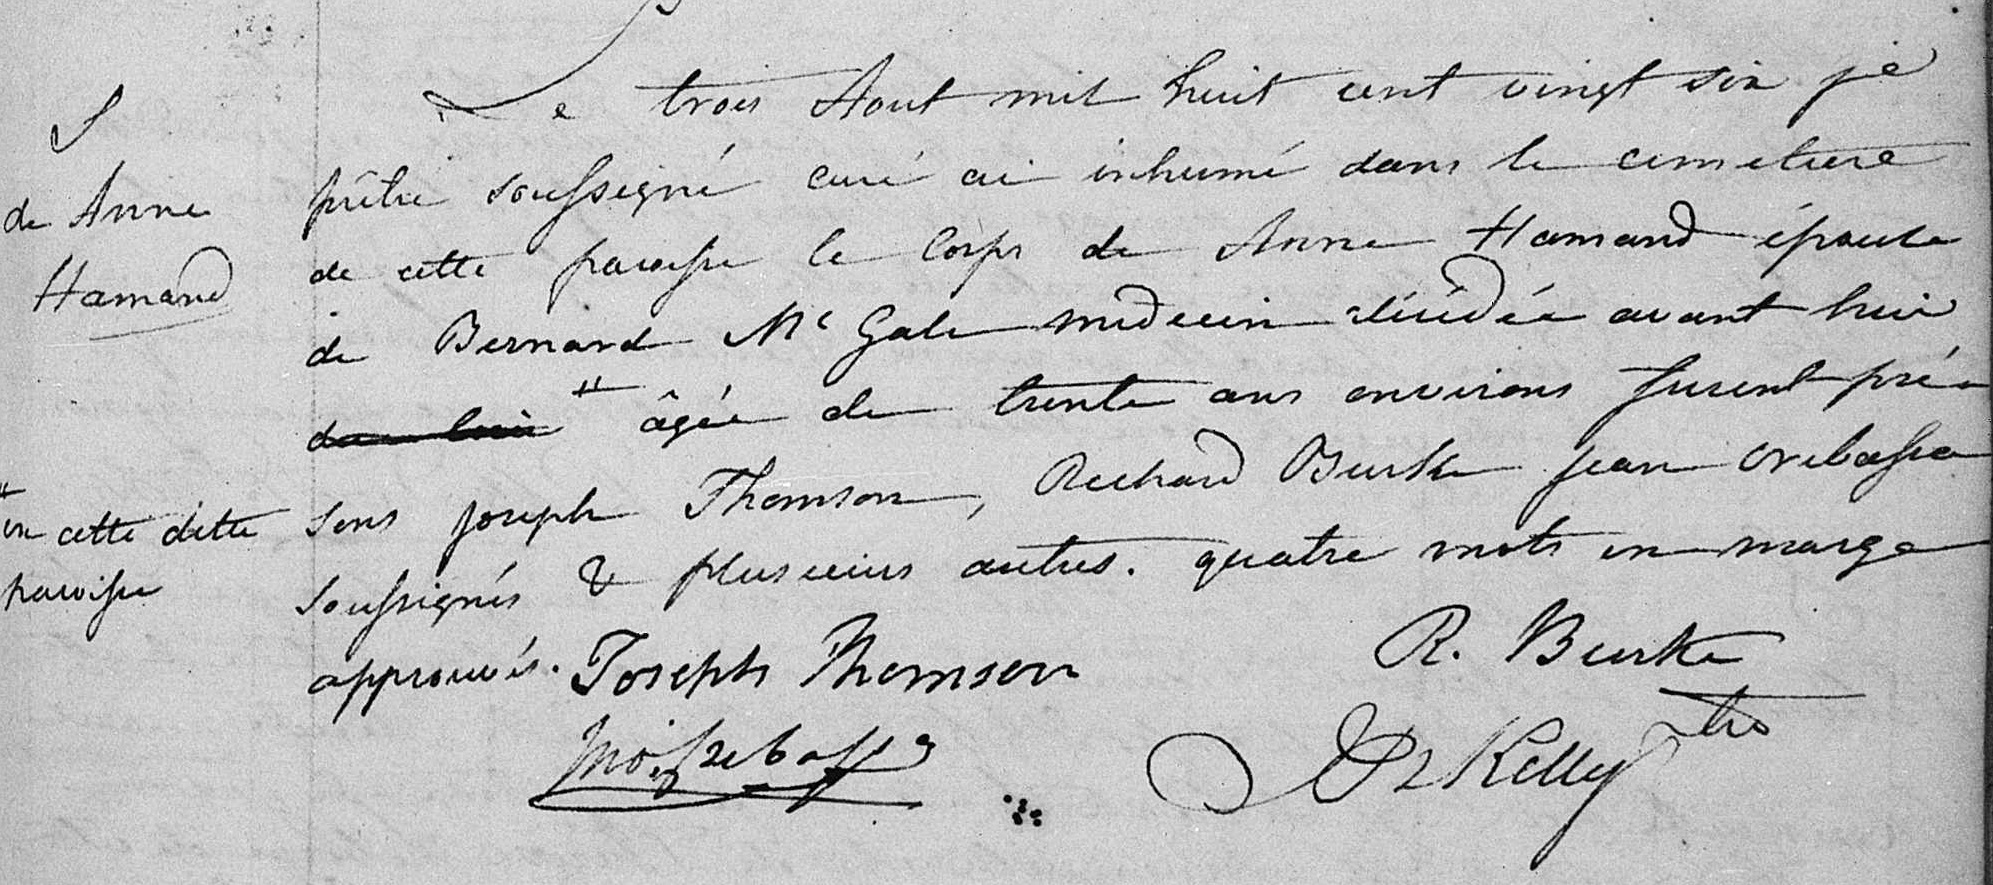 S
de Anne
Hamand
Le trois Aout mil huit cent vingt six je
prêtre soussigné curé ai inhumé dans le cimetiere
de cette paroisse le corps de Anne Hamand épouse
de Bernard Mc Gale médecin décédée avant hier
âgée de trente ans environs furent pré-
sens Joseph Thomson, Richard Burke Jean
soussignés & plusieurs autres. quatre mots en marge
approuvés.
" en cette ditte
paroisse
Joseph Thomson
R. Burke
Kelly Ptre